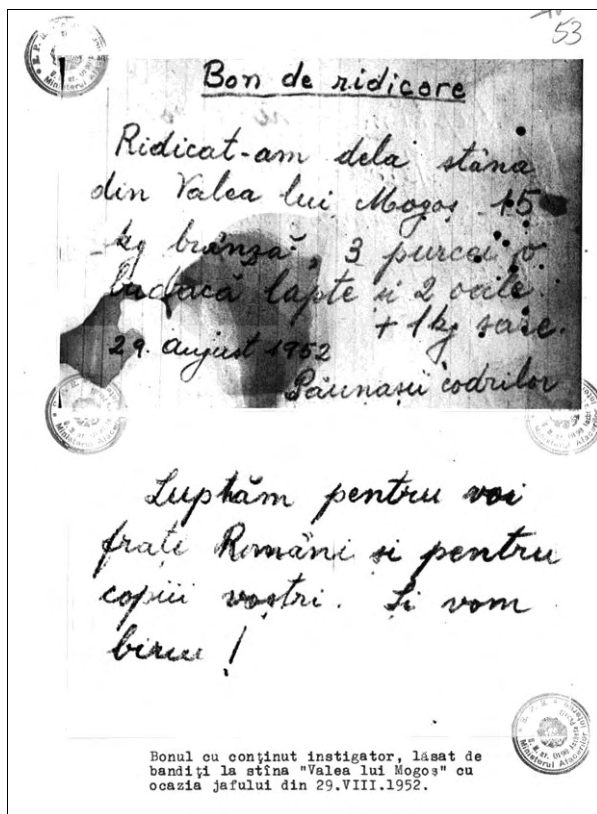 53
Bon de ridicare
Ridicat-am dela stâna
din Valea lui Mogoș 15
kg brânză, 3 purcei o
budacă lapte si 2 ocile
+ 1 kg sare.
29. August 1952
Păunașii codrilor
Luptăm pentru voi
frați Români si pentru
copiii voștri. Si vom
birui!
Bonul cu conținut instigator, lăsat de
bandiți la stîna "Valea lui Mogoș" cu
ocazia jafului din 29.VIII.1952.